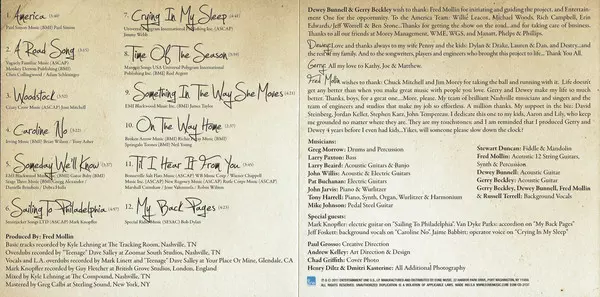 1. America (3:40)
Paul Simon Music (BMI) Paul Simon
2. A Road Song (4:01)
Vaguely Familiar Music (ASCAP)
Monkey Demon Publishing (BMI)
Chris Collingwood / Adam Schlesinger
3. Woodstock (3:02)
Crazy Crow Music (ASCAP) Joni Mitchell
4. Caroline No (3:22)
Irving Music (BMI) Brian Wilson / Tony Asher
5. Someday We'll Know (3:37)
EMI Blackwood Music (BMI) Gator Baby (BMI)
Danielle Brisebois / Debra Holland
6. Sailing To Philadelphia (4:47)
Straitjacket Songs LTD (ASCAP) Mark Knopfler
7. Crying In My Sleep (4:41)
Universal Polygram International Publishing Inc. (ASCAP)
Jimmy Webb
8. Time Of The Season
Mainspring Songs USA Universal Polygram International
Publishing Inc. (BMI) Rod Argent
9. Something In The Way She Moves (4:21)
EMI Blackwood Music Inc. (BMI) James Taylor
10. On The Way Home (2:37)
Broken Arrow Music (BMI) Richie Furay Music (BMI)
Springalo Toones (BMI) Neil Young
11. Til I Hear It From You
Marshall Crenshaw / Jesse Valenzuela / Robin Wilson
12. My Back Pages (4:25)
Special Rider Music (SESAC) Bob Dylan
Produced By: Fred Mollin
Basic tracks recorded by Kyle Lehning at The Tracking Room, Nashville, TN
Overdubs recorded by "Teenage" Dave Salley at Zoomar South Studios, Nashville, TN
Vocals and L.A. overdubs recorded by Mark Linett and "Teenage" Dave Salley at Your Place Or Mine, Glendale, CA
Mark Knopfler recorded by Guy Fletcher at British Grove Studios, London, England
Mixed by Kyle Lehning at The Compound, Nashville, TN
Mastered by Greg Calbi at Sterling Sound, New York, NY
Dewey Bunnell & Gerry Beckley wish to thank: Fred Mollin for initiating and guiding the project, and Entertain-
ment One for the opportunity. To the America Team: Willie Leacox, Michael Woods, Rich Campbell, Erin
Edwards/Jeff Worrell & Ben Sone...Thanks for getting the show on the road...and for taking care of business.
Thanks to all our friends at Morey Management, WME, WGS, and Manatt, Phelps & Phillips.
Dewey: Love and thanks always to my wife Penny and the kids: Dylan & Drake, Lauren & Dan, and Destry...and
the rest of my family. And to the songwriters, players and engineers who brought this project to life... Thank You All.
Gerry: All my love to Kathy, Joe & Matthew.
Fred Mollin wishes to thank: Chuck Mitchell and Jim Morey for taking the ball and running with it. Life doesn't
get any better than when you make great music with people you love. Gerry and Dewey make my life so much
better. Thanks, boys, for a great one...More, please. My team of brilliant Nashville musicians and singers and the
team of engineers and studios that make my job so effortless. A million thanks, My support in the biz: David
Steinberg, Jordan Keller, Stephen Kane, John Temporeau. I dedicate this one to my kids, Aarati and Lhya, who keep
me grounded no matter where they are. They are my touchstones and I am reminded I produced Gerry and
Dewey 4 years before I even had kids...Yikes, will someone please slow down the clock?
Musicians:
Greg Morrow: Drums and Percussion
Larry Paxton: Bass
Larry Beaird: Acoustic Guitars & Banjo
John Willis: Acoustic & Electric Guitars
Pat Buchanan: Electric Guitars
John Jarvis: Piano & Wurlitzer
Tony Harrell: Piano, Synth, Organ, Wurlitzer & Harmonium
Mike Johnson: Pedal Steel Guitar
Stewart Duncan: Fiddle & Mandolin
Fred Mollin: Acoustic 12 String Guitars,
Synth & Percussion
Dewey Bunnell: Acoustic Guitar
Gerry Beckley: Acoustic Guitar
Gerry Beckley, Dewey Bunnell, Fred Mollin
& Russell Terrell: Background Vocals
Special guests:
Mark Knopfler: electric guitar on "Sailing To Philadelphia" Van Dyke Parks: accordion on "My Back Pages"
Jeff Foskett: background vocals on "Caroline No" Jaime Babbitt: operator voice on "Crying In My Sleep"
Paul Grosso: Creative Direction
Andrew Kelley: Art Direction & Design
Chad Griffith: Cover Photo
Henry Diltz & Dmitri Kasterine: All Additional Photography